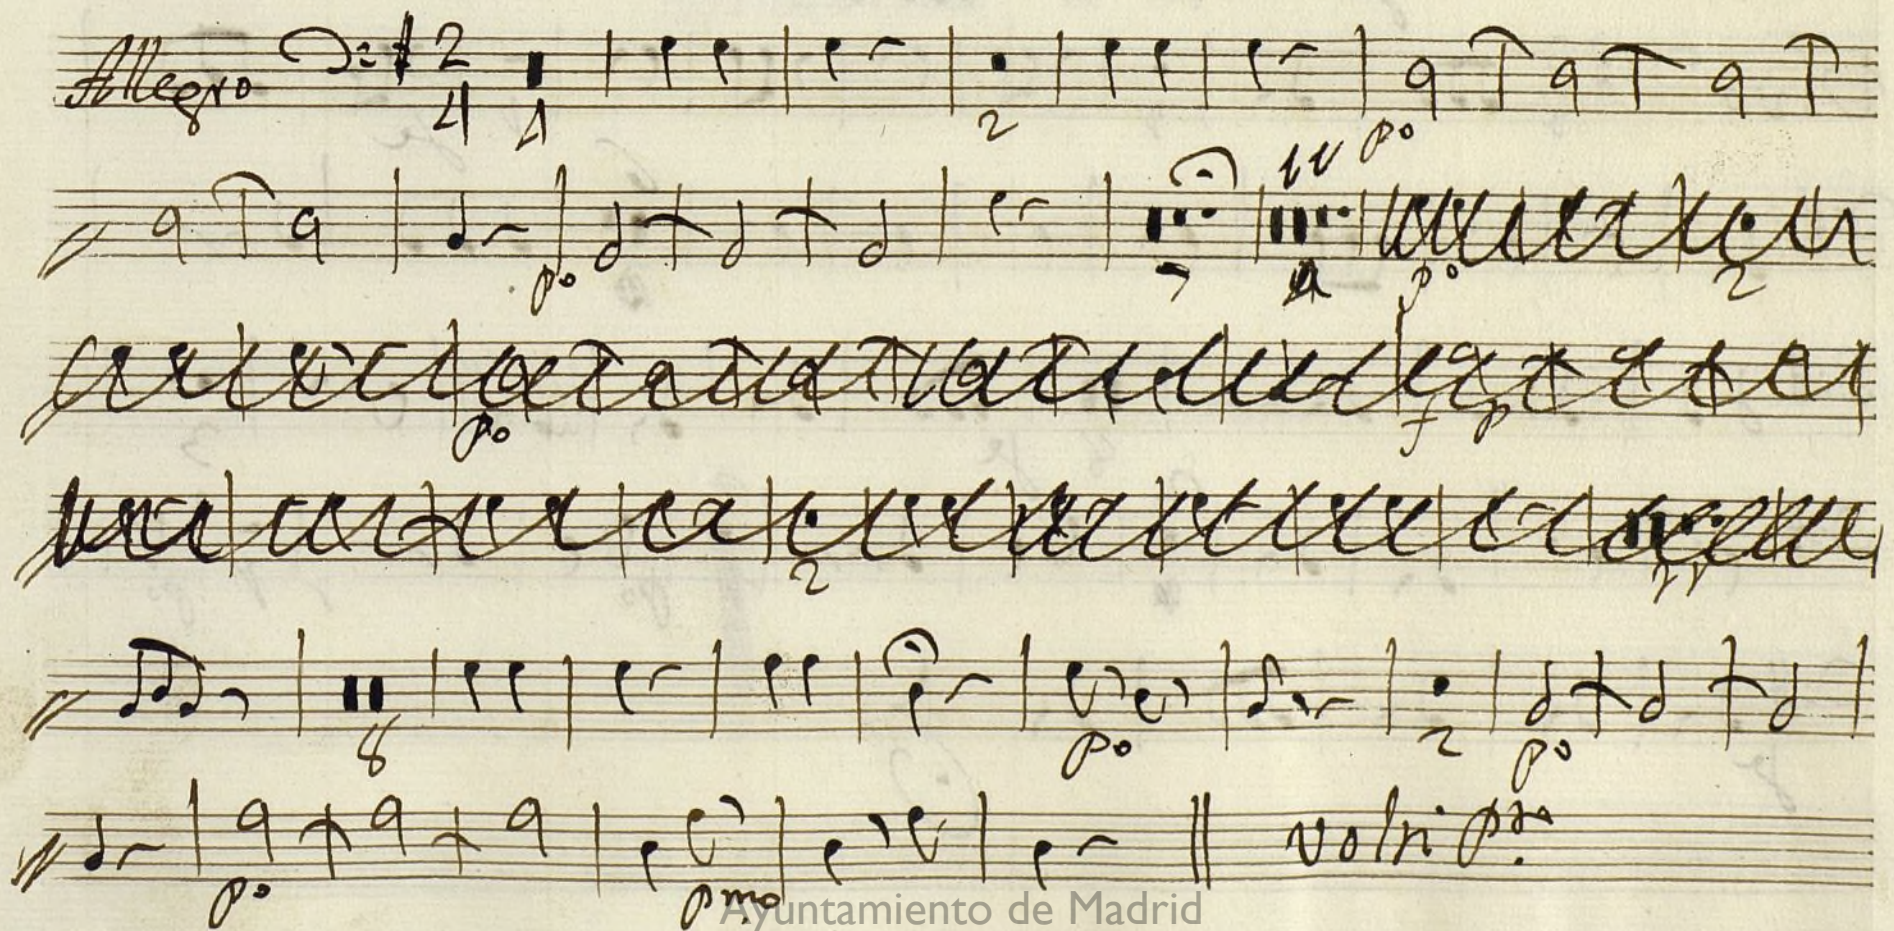 Allegro 2
4 4 2 po
po 7 po 2
po f p
2 11
8 po 2 po
po pmo volti pto
Ayuntamiento de Madrid